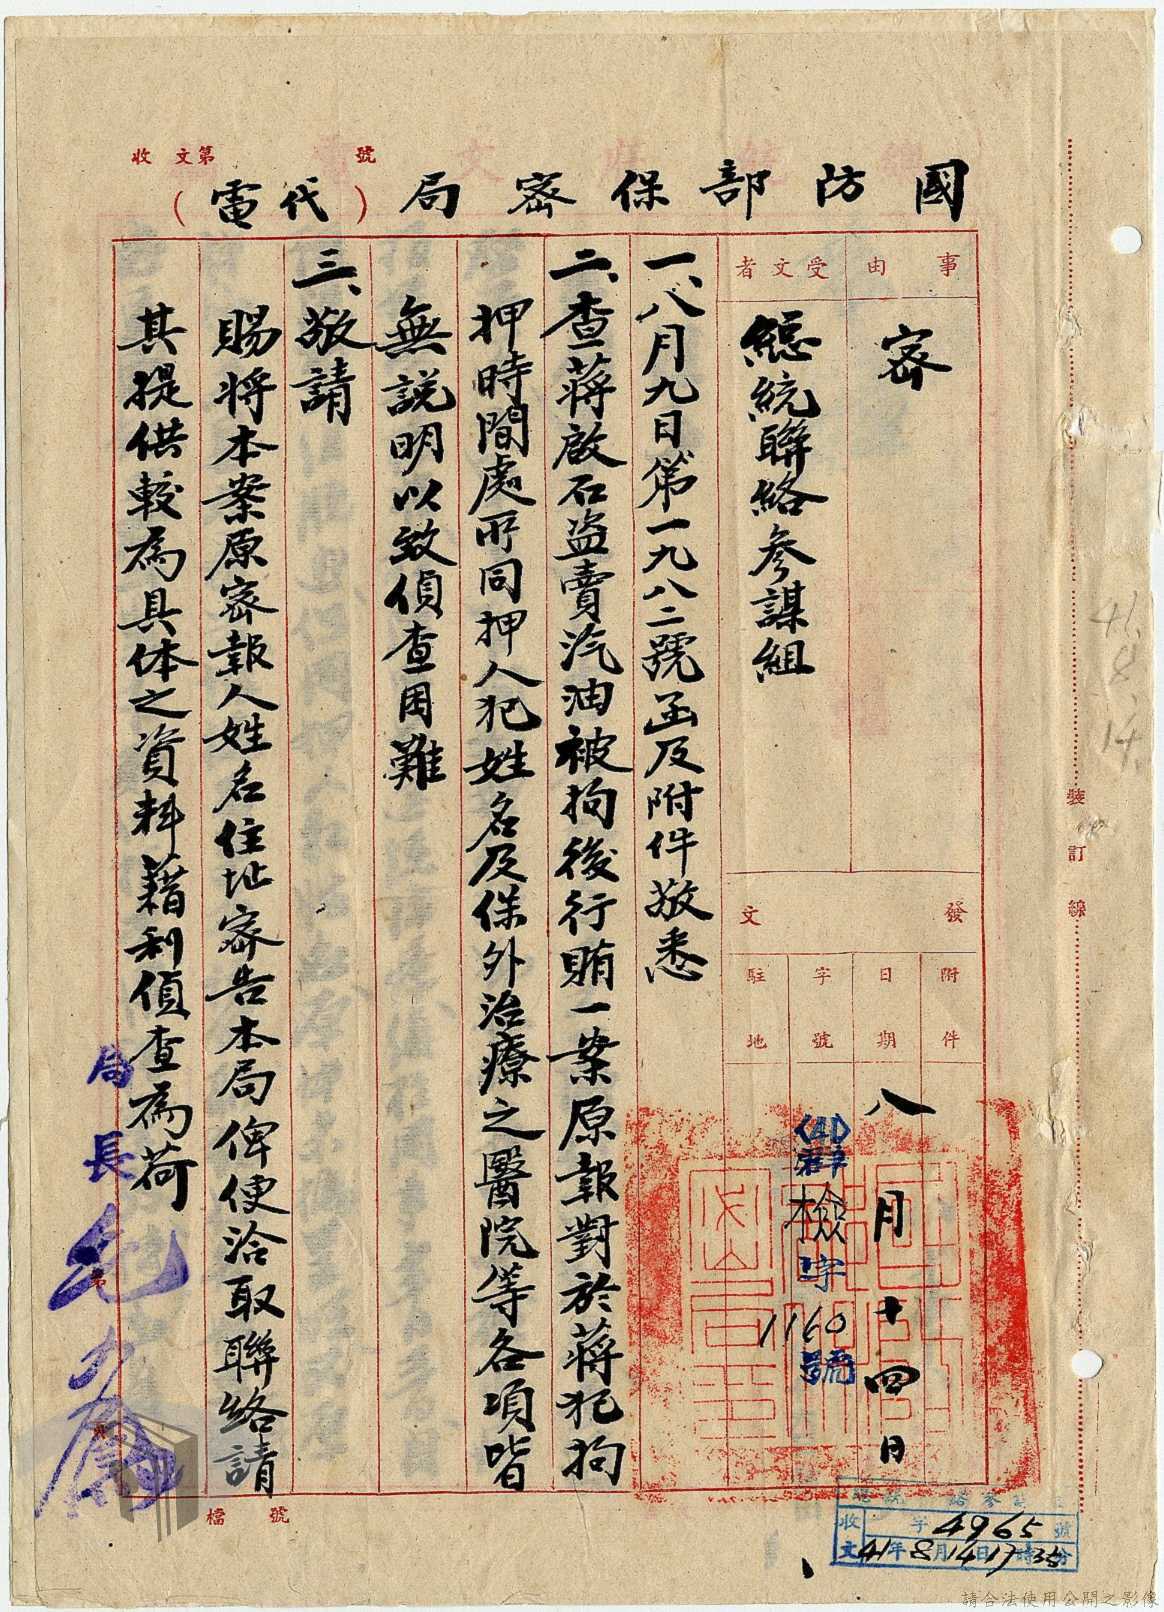 收文第　號
國防部保密局（代電）
事由
密
受文者
總統聯絡參謀組
發文
附件
日期
八月十四日
字號
(41)群檢字1160號
駐地
一、八月九日第一九八二號函及附件敬悉
二、查蔣啟石盜賣汽油被拘後行賄一案原報對於蔣犯拘
押時間處所同押人犯姓名及保外治療之醫院等各項皆
無說明以致偵查困難
三、敬請
賜將本案原密報人姓名住址密告本局俾便洽取聯絡請
其提供較為具体之資料藉利偵查為荷
局長毛人鳳
檔號
裝訂線
41.8.14.
收文　字4965號
41年8月14日17時35分
請合法使用公開之影像